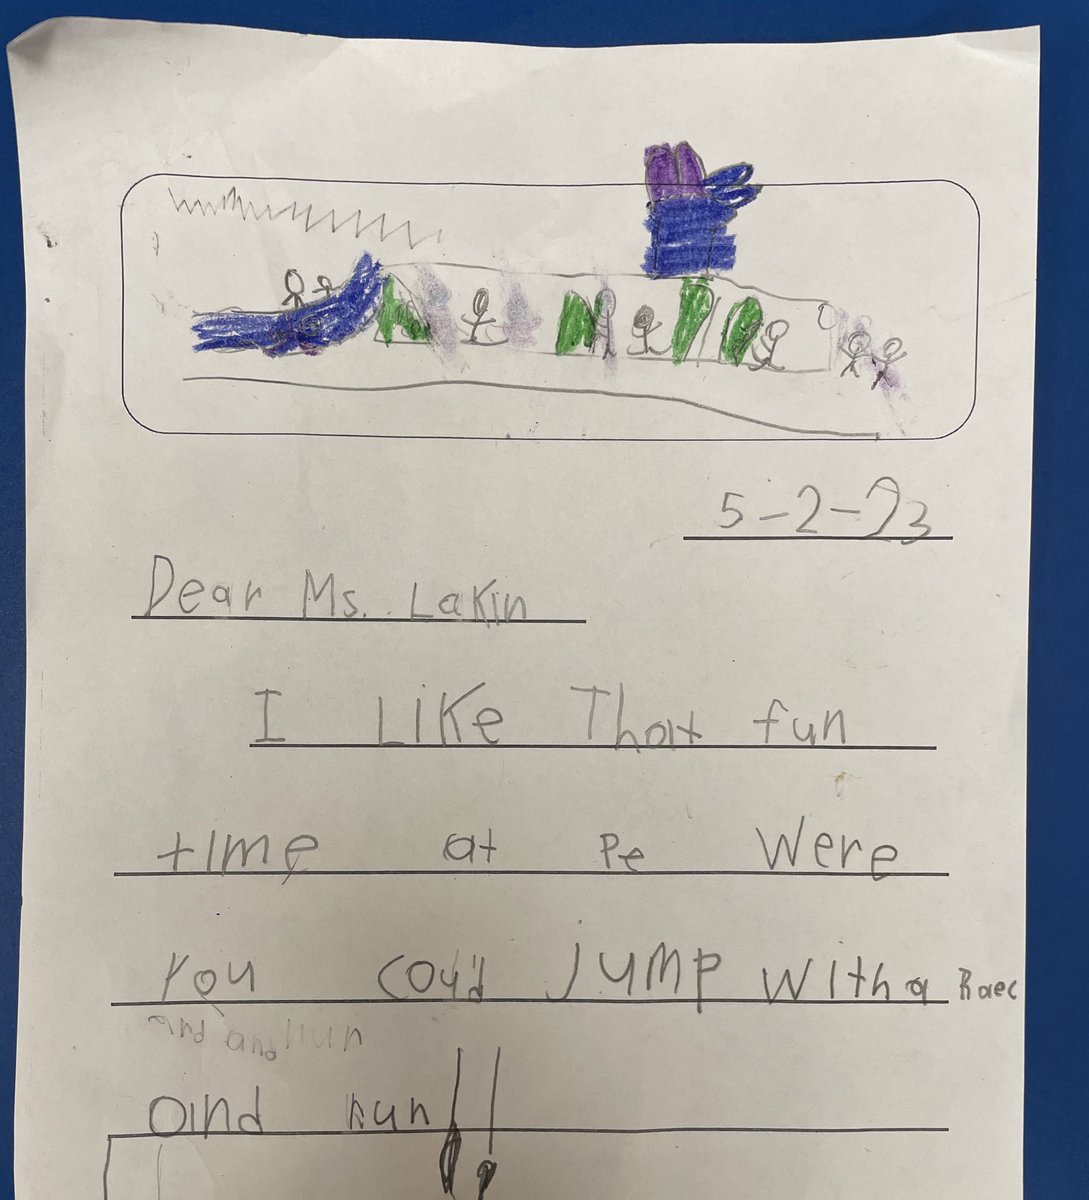 5-2-23
Dear Ms. Lakin
I Like That fun
time at Pe Were
You cou'd jump with a Raec
and and Run
and Run!!